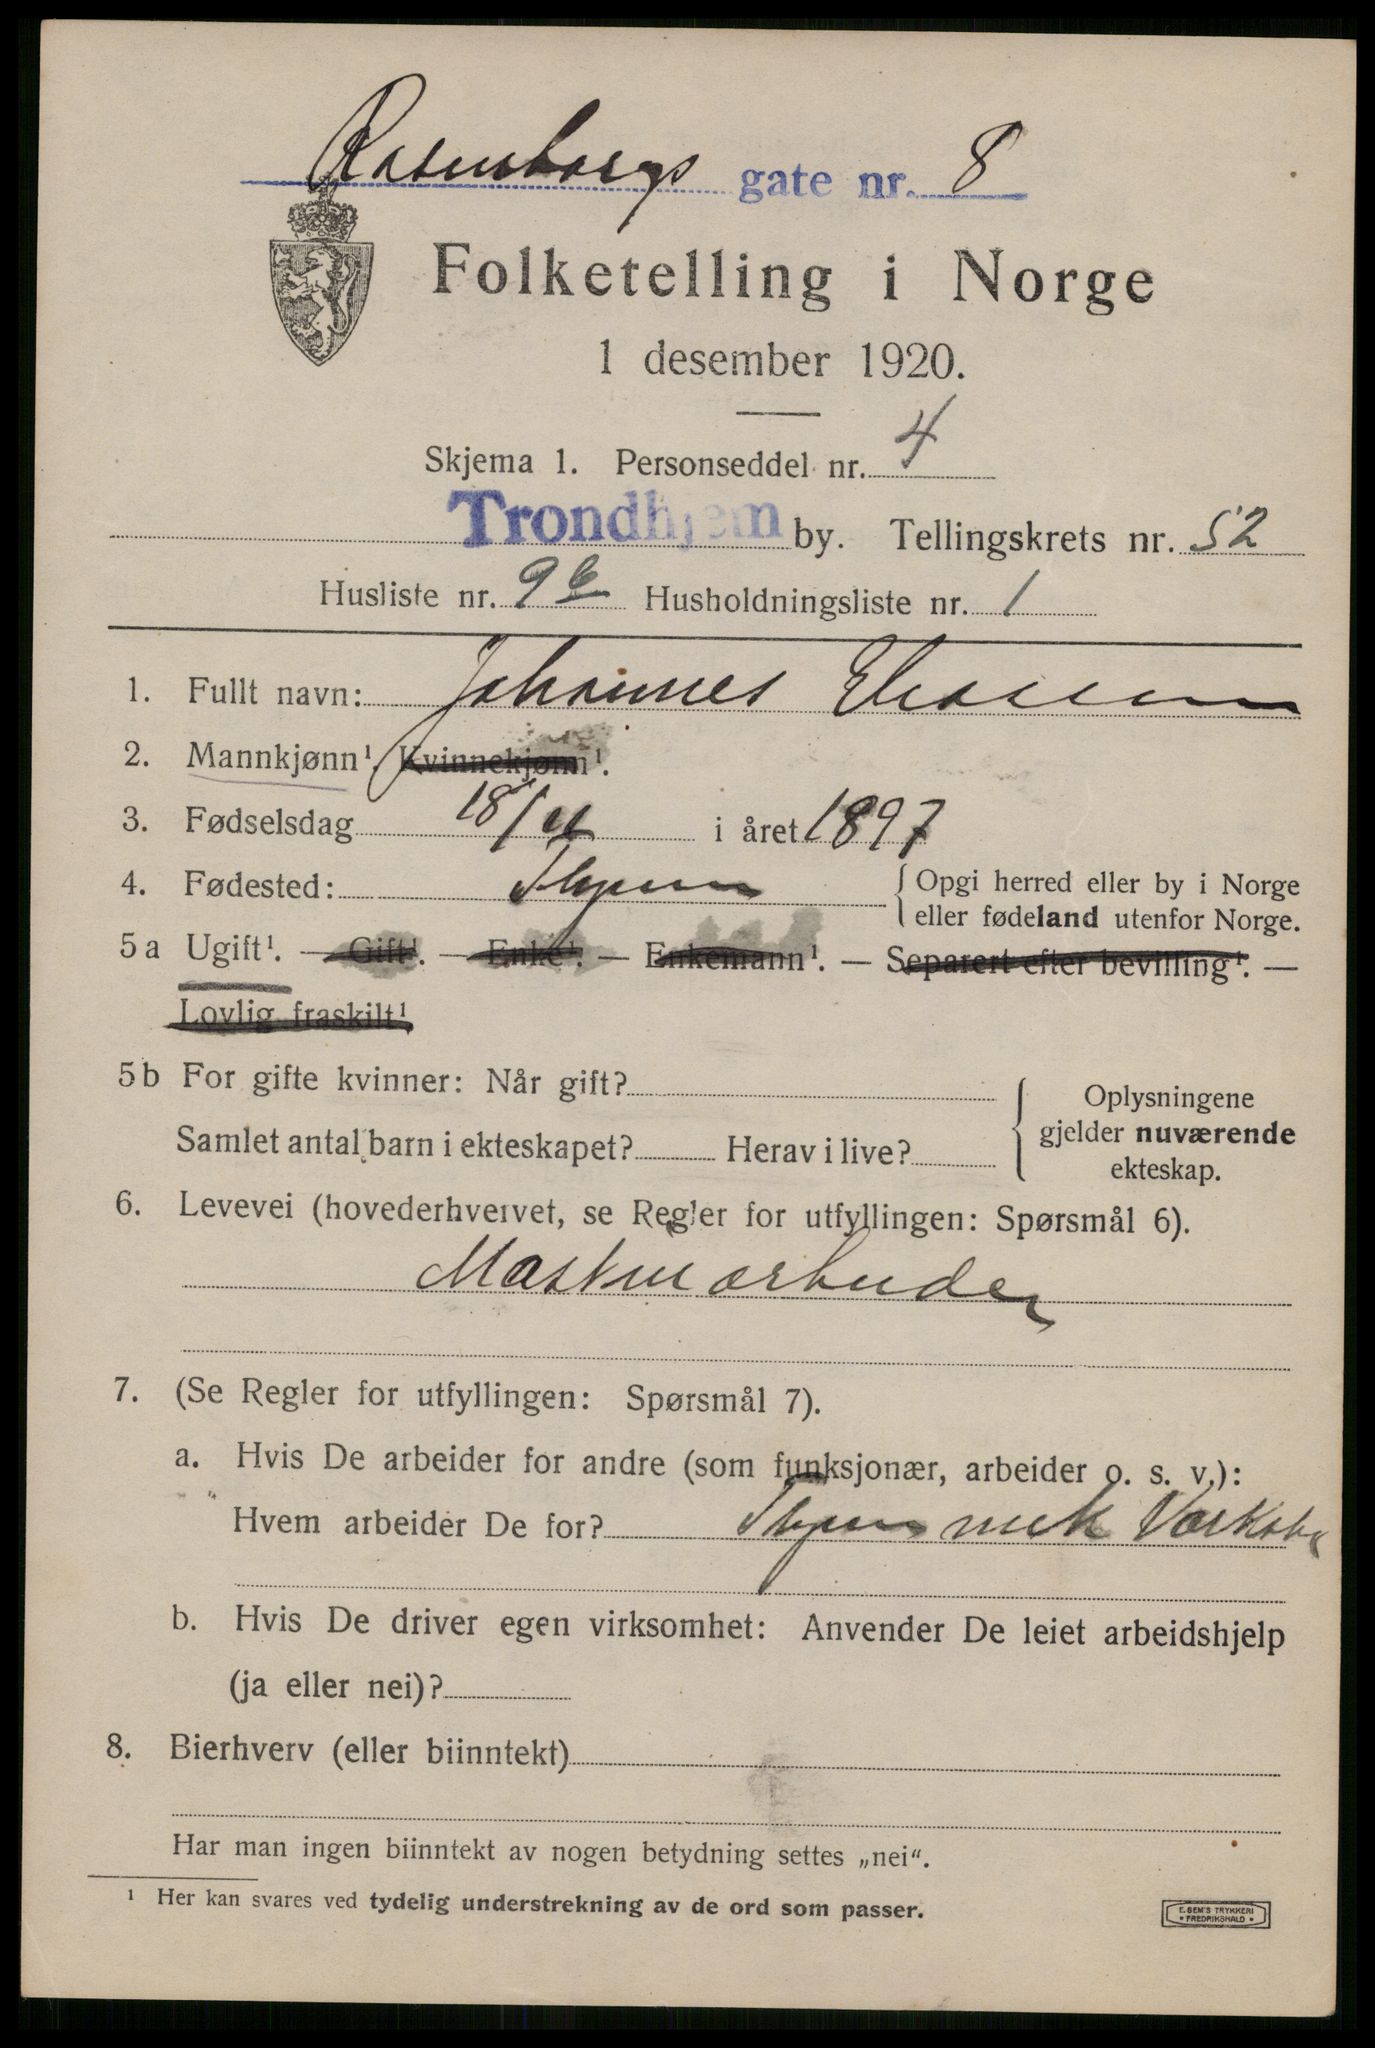 Rosenborgs gate nr. 8
Folketelling i Norge
1 desember 1920.
Skjema 1. Personseddel nr. 4
Trondhjem by. Tellingskrets nr. 52
Husliste nr. 9b Husholdningsliste nr. 1
1. Fullt navn: Johannes
2. Mannkjønn¹. Kvinnekjønn¹.
3. Fødselsdag 18/11 i året 1897
4. Fødested: Thjem { Opgi herred eller by i Norge
eller fødeland utenfor Norge.
5a Ugift¹. — Gift¹. — Enke¹. — Enkemann¹. — Separert efter bevilling¹. —
Lovlig fraskilt¹.
5b For gifte kvinner: Når gift? Oplysningene
gjelder nuværende
Samlet antal barn i ekteskapet? Herav i live?
ekteskap.
6. Levevei (hovederhvervet, se Regler for utfyllingen: Spørsmål 6).
Maskinarbeider
7. (Se Regler for utfyllingen: Spørsmål 7).
a. Hvis De arbeider for andre (som funksjonær, arbeider o. s. v.):
Hvem arbeider De for? Thjems mek Værksted
b. Hvis De driver egen virksomhet: Anvender De leiet arbeidshjelp
(ja eller nei)?
8. Bierhverv (eller biinntekt)
Har man ingen biinntekt av nogen betydning settes „nei".
¹ Her kan svares ved tydelig understrekning av de ord som passer.
E. SEM'S TRYKKERI
• FREDRIKSHALD •